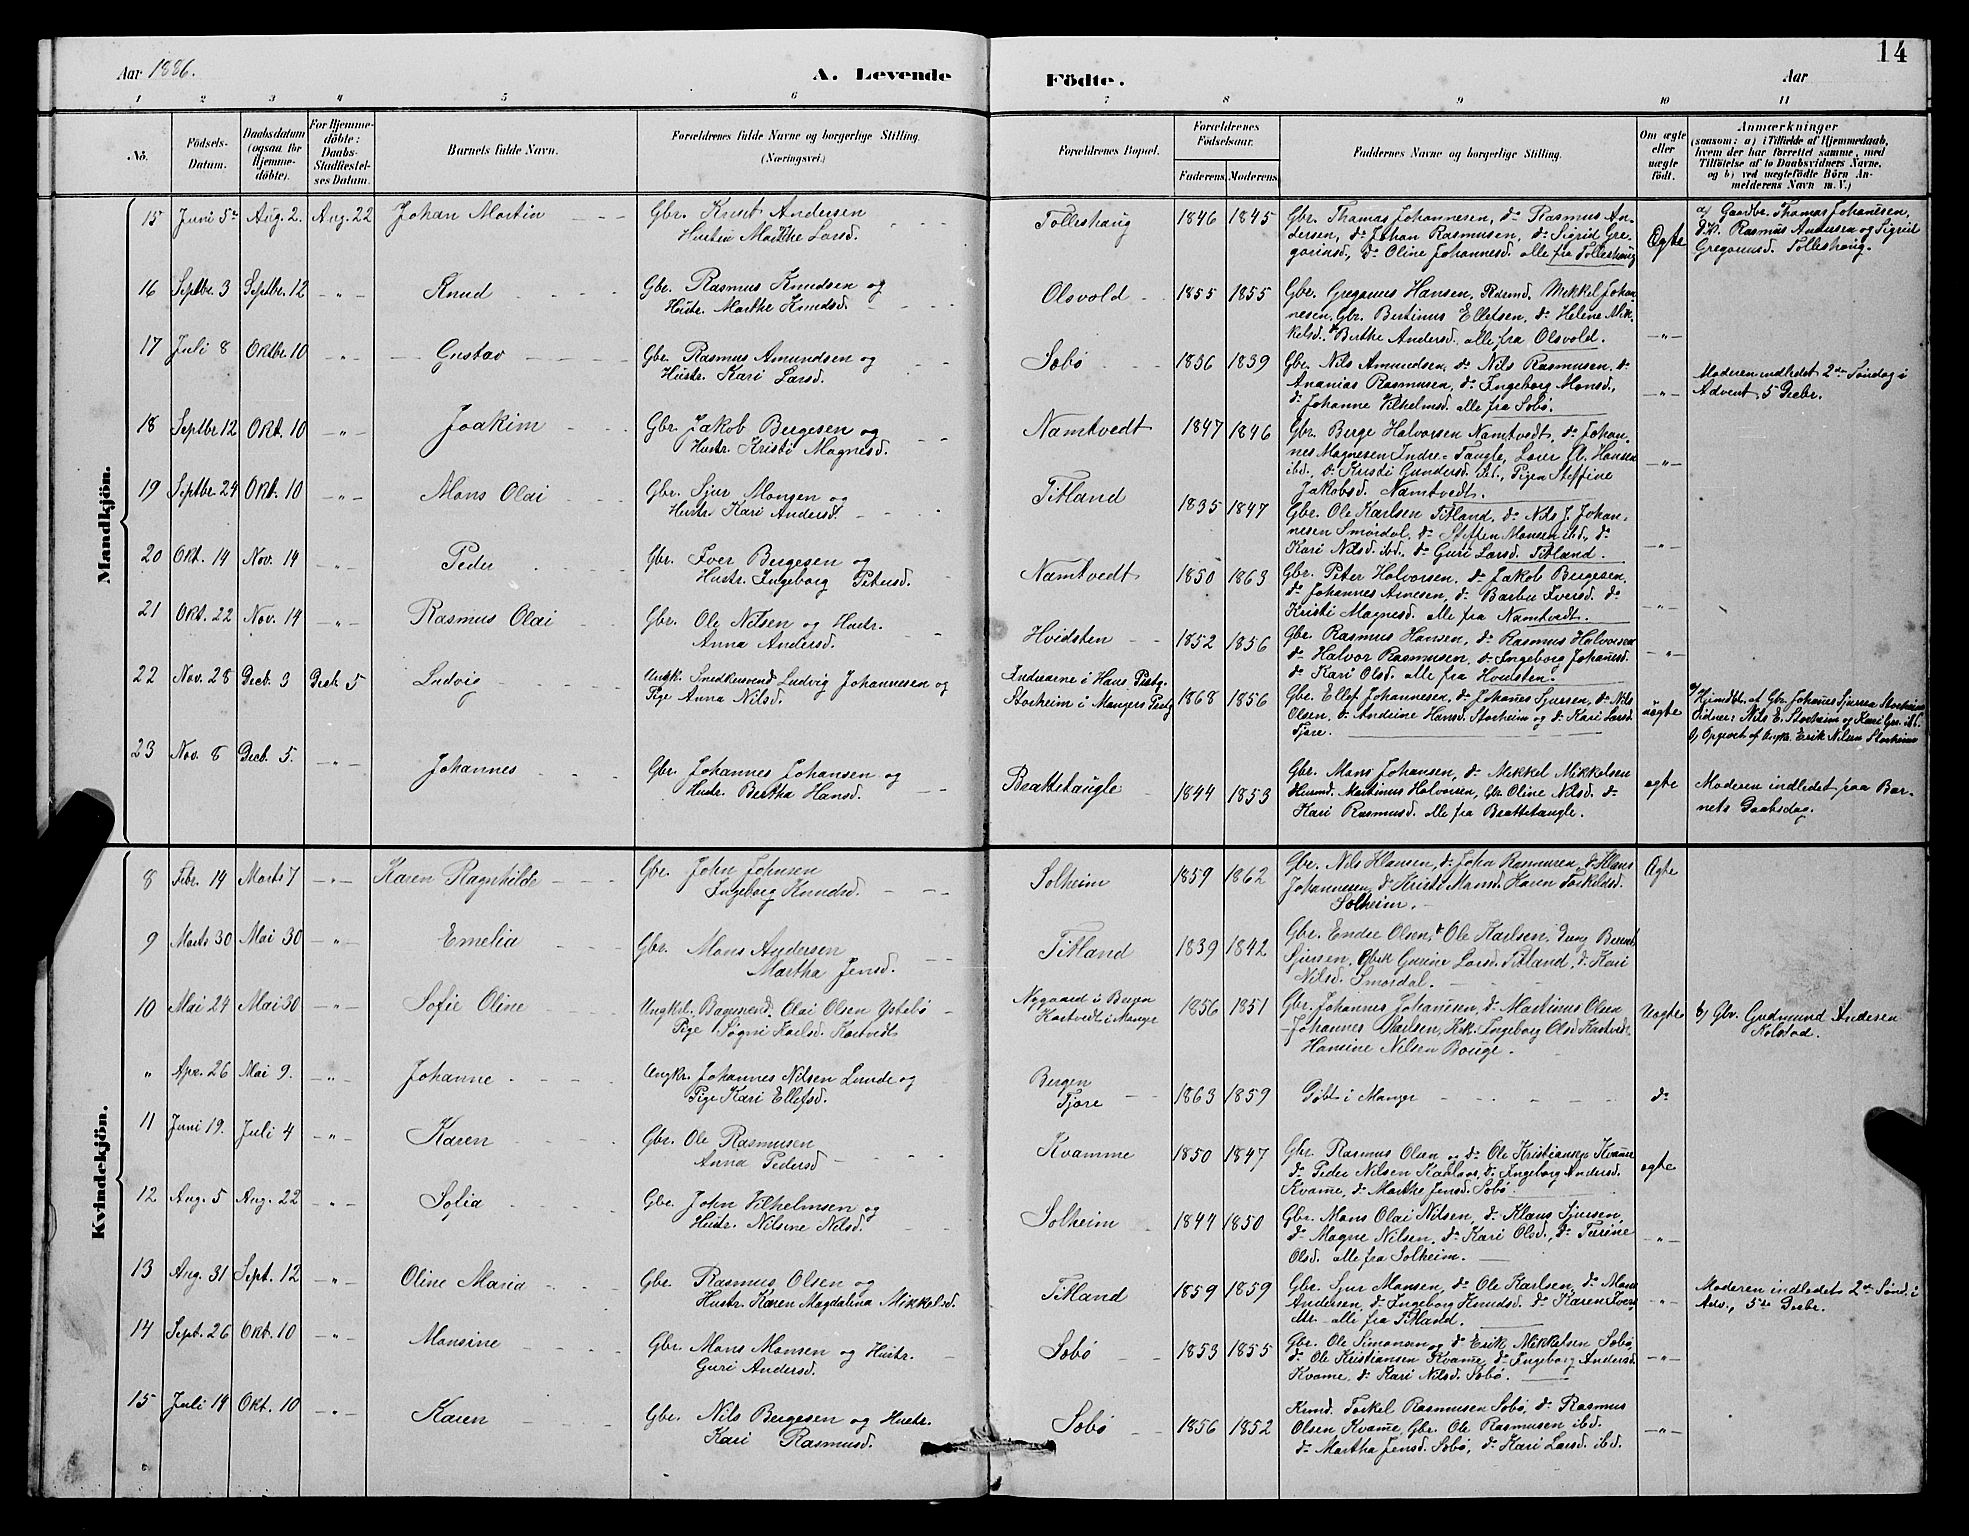 14
Aar 1886.
A. Levende
Födte.
Aar
1 2 3 4 5 6 7 8 9 10 11
No.
Födsels-Datum.
Daabsdatum (ogsaa for Hjemmedöbte).
For Hjemmedöbte: Daabs-Stadfæstelses Datum.
Barnets fulde Navn.
Forældrenes fulde Navne og borgerlige Stilling. (Næringsvei.)
Forældrenes Bopæl.
Forældrenes Födselsaar.
Faderens. Moderens.
Faddernes Navne og borgerlige Stilling.
Om ægte eller uægte födt.
Anmærkninger
(saasom: a) i Tilfælde af Hjemmedaab, hvem der har forrettet samme, med Tilföielse af to Daabsvidners Navne, og b) ved uægtefödte Börn Anmelderens Navn m. V.)
Mandkjön.
15 Juni 5te Aug. 2. Aug. 22 Johan Martin
Gbr. Knut Andersen
Hustru Marthe Larsd.
Tolleshaug 1846 1845
Gbr. Thomas Johannesen, do Rasmus An-
dersen, do Johan Rasmusen, do Sigrid Gre-
gorinsd, do Oline Johannesd. alle fra Tolleshaug
Ægte
a) Gaardbr. Thomas Johannesen,
Rasmus Andersen og Sigrid
Tolleshaug.
16 Septbr. 3 Septbr. 12 -"- Knud
Gbr. Rasmus Knudsen og
Hustr. Marthe Knudsd.
Olsvold 1855 1855
Gbr. Gregorius Hansen, Mikkel Johan-
nesen, Gbr. Bertinus Ellefsen, do Helene Mik-
kelsd. do Berthe Andersd. alle fra Olsvold.
-"-
17 Juli 8 Oktbr. 10 -"- Gustav
Gbr. Rasmus Amundsen og
Hustr. Kari Larsd.
Sobø 1836 1839
Gbr. Nils Amundsen, do Nils Rasmusen, do
Ananias Rasmusen, do Ingeborg Monsd.,
do Johanne Vilhelmsd. alle fra Sobø.
-"-
Moderen indledet 2den Søndag i
Advent, 5 Decbr.
18 Septbr 12 Okt. 10 -"- Joakim
Gbr. Jakob Bergesen og
Hustr. Kristi Magnesd.
Namtvedt 1847 1846
Gbr. Berge Halvorsen Namtvedt, do Johan-
nes Magnesen Indre-Taugle, Hansen
ibd, do Kristi Gundersd. ibd., Pigen Steffine
Jakobsd. Namtvedt.
-"-
19 Septbr 24 Okt. 10 -"- Mons Olai
Gbr. Sjur Monsen og
Hustr. Kari Andersd.
Titland 1835 1847
Gbr. Ole Karlsen Titland, do Nils J. Johan-
nesen Smørdal, do Steffen Monsen ibd, do
Kari Nilsd. ibd. do Guri Larsd. Titland.
-"-
20 Okt. 14 Nov. 14 -"- Peder
Gbr. Iver Bergesen og
Hustr. Ingeborg Petersd.
Namtvedt 1850 1863
Gbr. Peter Halvorsen, do Jakob Bergesen,
do Johannes Arnesen, do Barbu Iversd. do
Kristi Magnesd. alle fra Namtvedt.
-"-
21 Okt. 22 Nov. 14 -"- Rasmus Olai
Gbr. Ole Nilsen og Hustr.
Anna Andersd.
Hvidsten 1852 1856
Gbr. Rasmus Hansen, do Rasmus Halvorsen
do Halvor Rasmusen, do Ingeborg Johannesd.
do Kari Olsd. alle fra Hvidsten.
-"-
22 Nov. 28 Decb. 3 Decb. 5 Ludvig
Ungk. Snedkersvend Ludvig Johannesen og
Pige Anna Nilsd.
Andreaene i Hans Pgld.
Storheim i Mangers Pgld. 1868 1856
Gbr. Ellef Johannesen, do Johannes Sjursen, do Nils
Olsen, do Andrine Hansd. Storheim og do Kari Larsd.
Fjore.
uægte
a) Hjmdbt. af Gbr. Johannes Sjursen Storheim
Vidner: Nils E. Storheim og Kari
b) Opgivet af Ungk. Erik Nilsen Storheim
23 Nov. 8 Decb. 5. -"- Johannes
Gbr. Johannes Johansen og
Hustr. Bertha Hansd.
Brattetaugle 1844 1853
Gbr. Mons Johansen, do Mikkel Mikkelsen
Husmd. Martinus Halvorsen, Gbr. Oline Nilsd. do
Kari Rasmusd. alle fra Brattetaugle.
ægte
Moderen indledet paa Bar-
nets Daabsdag.
Kvindekjön.
8 Febr. 14 Marts 7 -"- Karen Ragnhilde
Gbr. John Johnsen
Ingeborg Knudsd.
Solheim 1859 1862
Gbr. Nils Hansen, do John Rasmusen, do Klaus
Johannesen, do Kristi Monsd. Karen Torkildsd.
Solheim.
Ægte
9 Marts 30 Mai 30 -"- Emelia
Gbr. Mons Andersen
Martha Jensd.
Titland 1839 1842
Gbr. Endre Olsen, do Ole Karlsen, Berent
Sjursen, Gurine Larsd. Titland, do Kari
Nilsd. Smørdal.
10 Mai 24 Mai 30 -"- Sofie Oline
Ungkrl. Olai Olsen Ystebø
Pige Søgni Karlsd. Kartvedt
Nygaard i Bergen
Kartvedt i Manger 1856 1851
Gbr. Johannes Johannesen, do Martinus Olsen
Johannes Karlsen, Ingeborg Olsd Kartvedt
Hansine Nilsen Bouge.
Uægte
b) Gbr. Gudmund Andersen
Kolstad.
" Apr. 26 Mai 9. -"- Johanne
Ungkr. Johannes Nilsen Lunde og
Pige Kari Ellefsd.
Bergen
Fjore 1863 1859
Døbt i Manger
do
11 Juni 19. Juli 4 -"- Karen
Gbr. Ole Rasmusen
Anna Pedersd
Kvamme 1850 1847
Gbr. Rasmus Olsen og do Ole Kristiansen Kvame
do Peder Nilsen do Ingeborg Andersd.
Kvame, do Marthe Jensd. Sobø.
ægte
12 Aug. 5 Aug. 22 -"- Sofia
Gbr. John Vilhelmsen og
Hustr. Nilsine Nilsd.
Solheim 1844 1850
Gbr. Mons Olai Nilsen, do Klaus Sjursen,
do Magne Nilsen, do Kari Olsd., do Turine
Olsd. alle fra Solheim.
-"-
13 Aug. 31 Sept. 12 -"- Oline Maria
Gbr. Rasmus Olsen og
Hustr. Karen Magdalina Mikkelsd.
Titland 1859 1859
Gbr. Sjur Monsen, do Ole Karlsen, do Mons
Andersen, do Ingeborg Knudsd. do Karen Ivers-
dtr. alle fra Titland.
-"-
Moderen indledet 2den Sønd. i
Adv., 5te Decbr.
14 Sept. 26 Okt. 10 -"- Monsine
Gbr. Mons Monsen og Hustr.
Guri Andersd.
Sobø 1853 1855
Gbr. Ole Simonsen og do Erik Mikkelsen Sobø,
do Ole Kristiansen Kvame, do Ingeborg Andersd.
Kvame, do Kari Nilsd. Sobø.
-"-
15 Juli 14 Okt. 10 -"- Karen
Gbr. Nils Bergesen og Hustr.
Kari Rasmusd.
Sobø 1856 1852
Torkel Rasmusen Sobø, do Rasmus
Olsen Kvame, Gbr. Ole Rasmusen ibd.
do Martha Jensd. Sobø, do Kari Larsd. ibd.
-"-